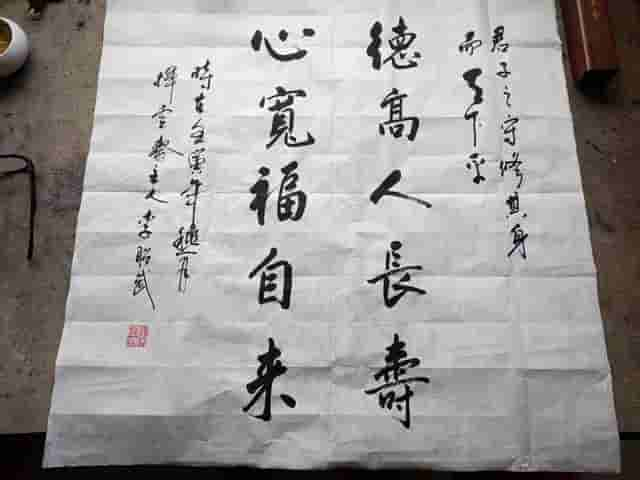 君子之守修其身
而天下平
德高人長壽
心寬福自来
時在壬寅年
主人李昭武